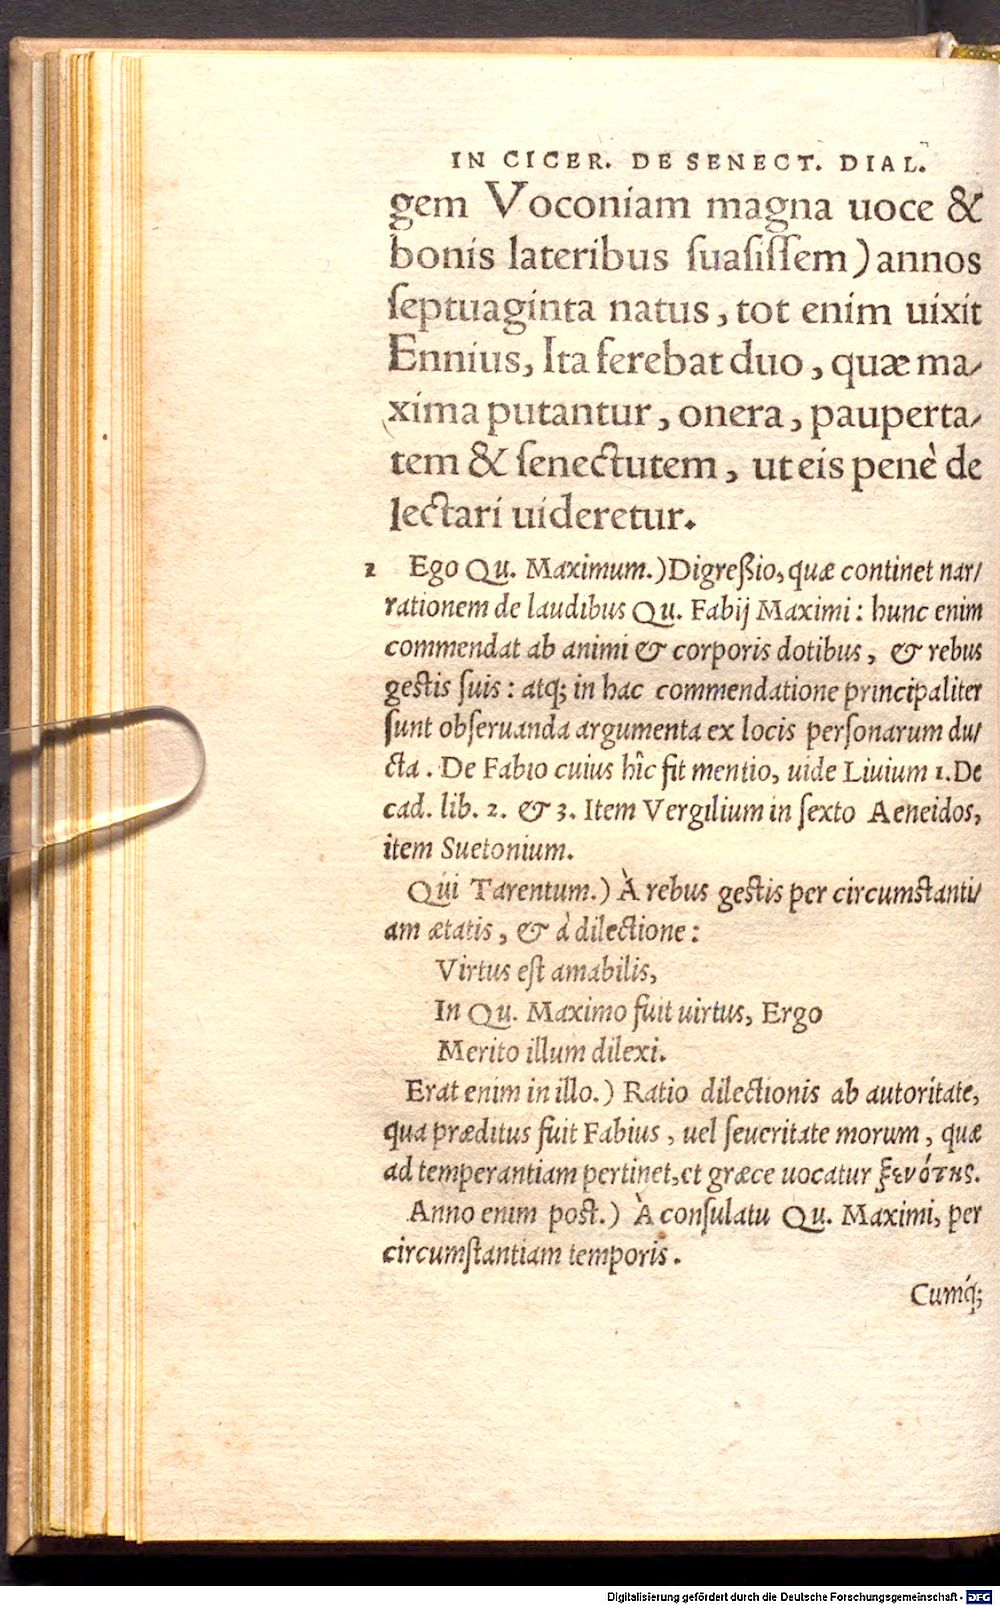 IN CICER. DE SENECT. DIAL.
gem Voconiam magna uoce &
bonis lateribus ſuaſiſſem) annos
ſeptuaginta natus, tot enim uixit
Ennius, Ita ferebat duo, quæ ma⸗
xima putantur, onera, pauperta⸗
tem & ſenectutem, ut eis penè de
lectari uideretur.
2 Ego Qu. Maximum.) Digreſsio, quæ continet nar⸗
rationem de laudibus Qu. Fabij Maximi: hunc enim
commendat ab animi & corporis dotibus, & rebus
geſtis ſuis: atq; in hac commendatione principaliter
ſunt obſeruanda argumenta ex locis perſonarum du⸗
cta. De Fabio cuius hîc fit mentio, uide Liuium 1. De
cad. lib. 2. & 3. Item Vergilium in ſexto Aeneidos,
item Suetonium.
Qui Tarentum.) À rebus geſtis per circumſtanti⸗
am ætatis, & à dilectione:
Virtus eſt amabilis,
In Qu. Maximo fuit uirtus, Ergo
Merito illum dilexi.
Erat enim in illo.) Ratio dilectionis ab autoritate,
qua præditus fuit Fabius, uel ſeueritate morum, quæ
ad temperantiam pertinet, et græce uocatur ξενότης.
Anno enim poſt.) À conſulatu Qu. Maximi, per
circumſtantiam temporis.
Cumq́;
Digitalisierung gefördert durch die Deutsche Forschungsgemeinschaft - DFG